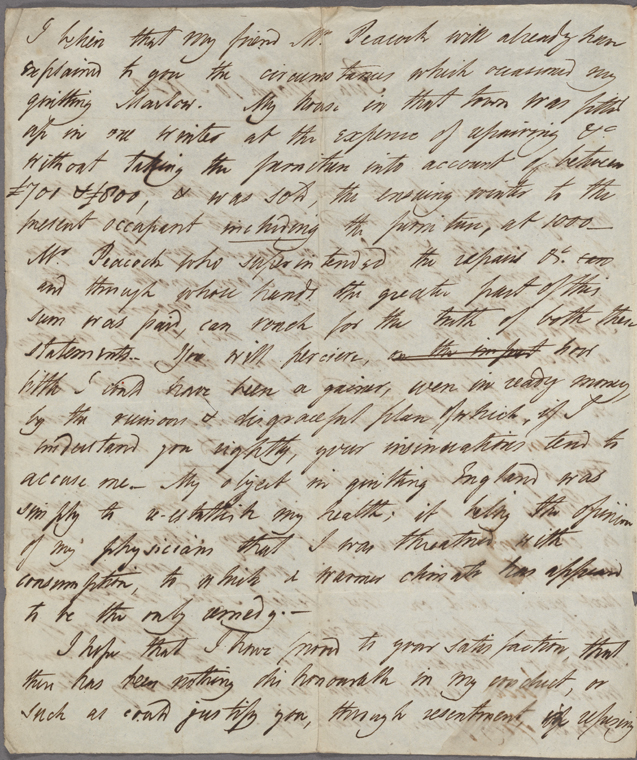 I believe that my friend Mr. Peacock will already have
explained to you the circumstances which occasioned my
quitting Marlow. My house in that town was fitted
up in one winter at the expense of repairing &c
without taking the furniture into account of between
£700 & £800, & was sold, the ensuing winter to the
present occupant including the furniture, at 1000—
Mr. Peacock who superintended the repairs &c.
and through whose hands the greater part of this
sum was paid, can vouch for the truth of both these
statements. You will percieve, on the how
little I could have been a gainer, even in ready money
by the ruinous & disgraceful plan of which, if I
understand you rightly, your insinuations tend to
accuse me— My object in quitting England was
simply to re-establish my health; it being the opinion
of my physicians that I was threatened with
consumption, to which a warmer climate has appeared
to be the only remedy.—
I hope that I have proved to your satisfaction, that
there has been nothing dishonourable in my conduct, or
such as could justify you, through resentment, refusing